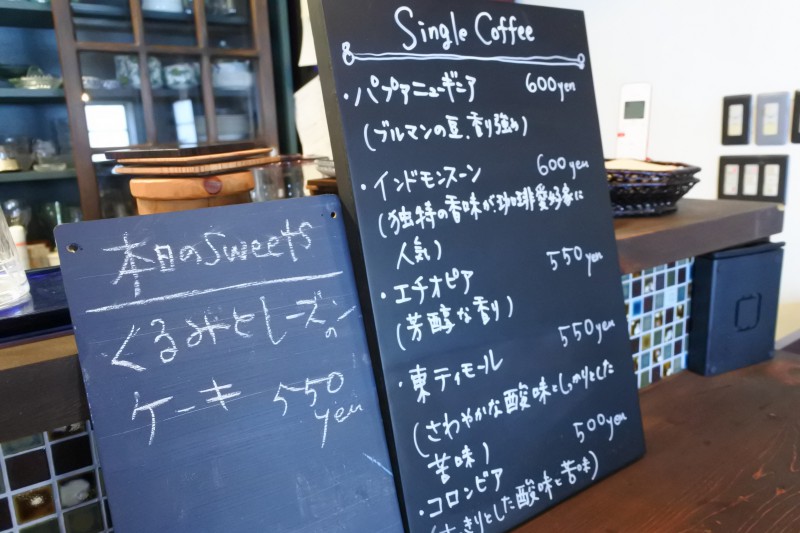 本日のsweets
くるみとレーズンの
ケーキ 550
yen
Single Coffee
・パプアニューギニア 600yen
(ブルマンの豆、香り強め)
・インドモンスーン 600yen
(独特の香味が珈琲愛好家に
人気)
・エチオピア 550yen
(芳醇な香り)
・東ティモール 550yen
(さわやかな酸味としっかりとした
苦味)
・コロンビア 500yen
(すっきりとした酸味と苦味)